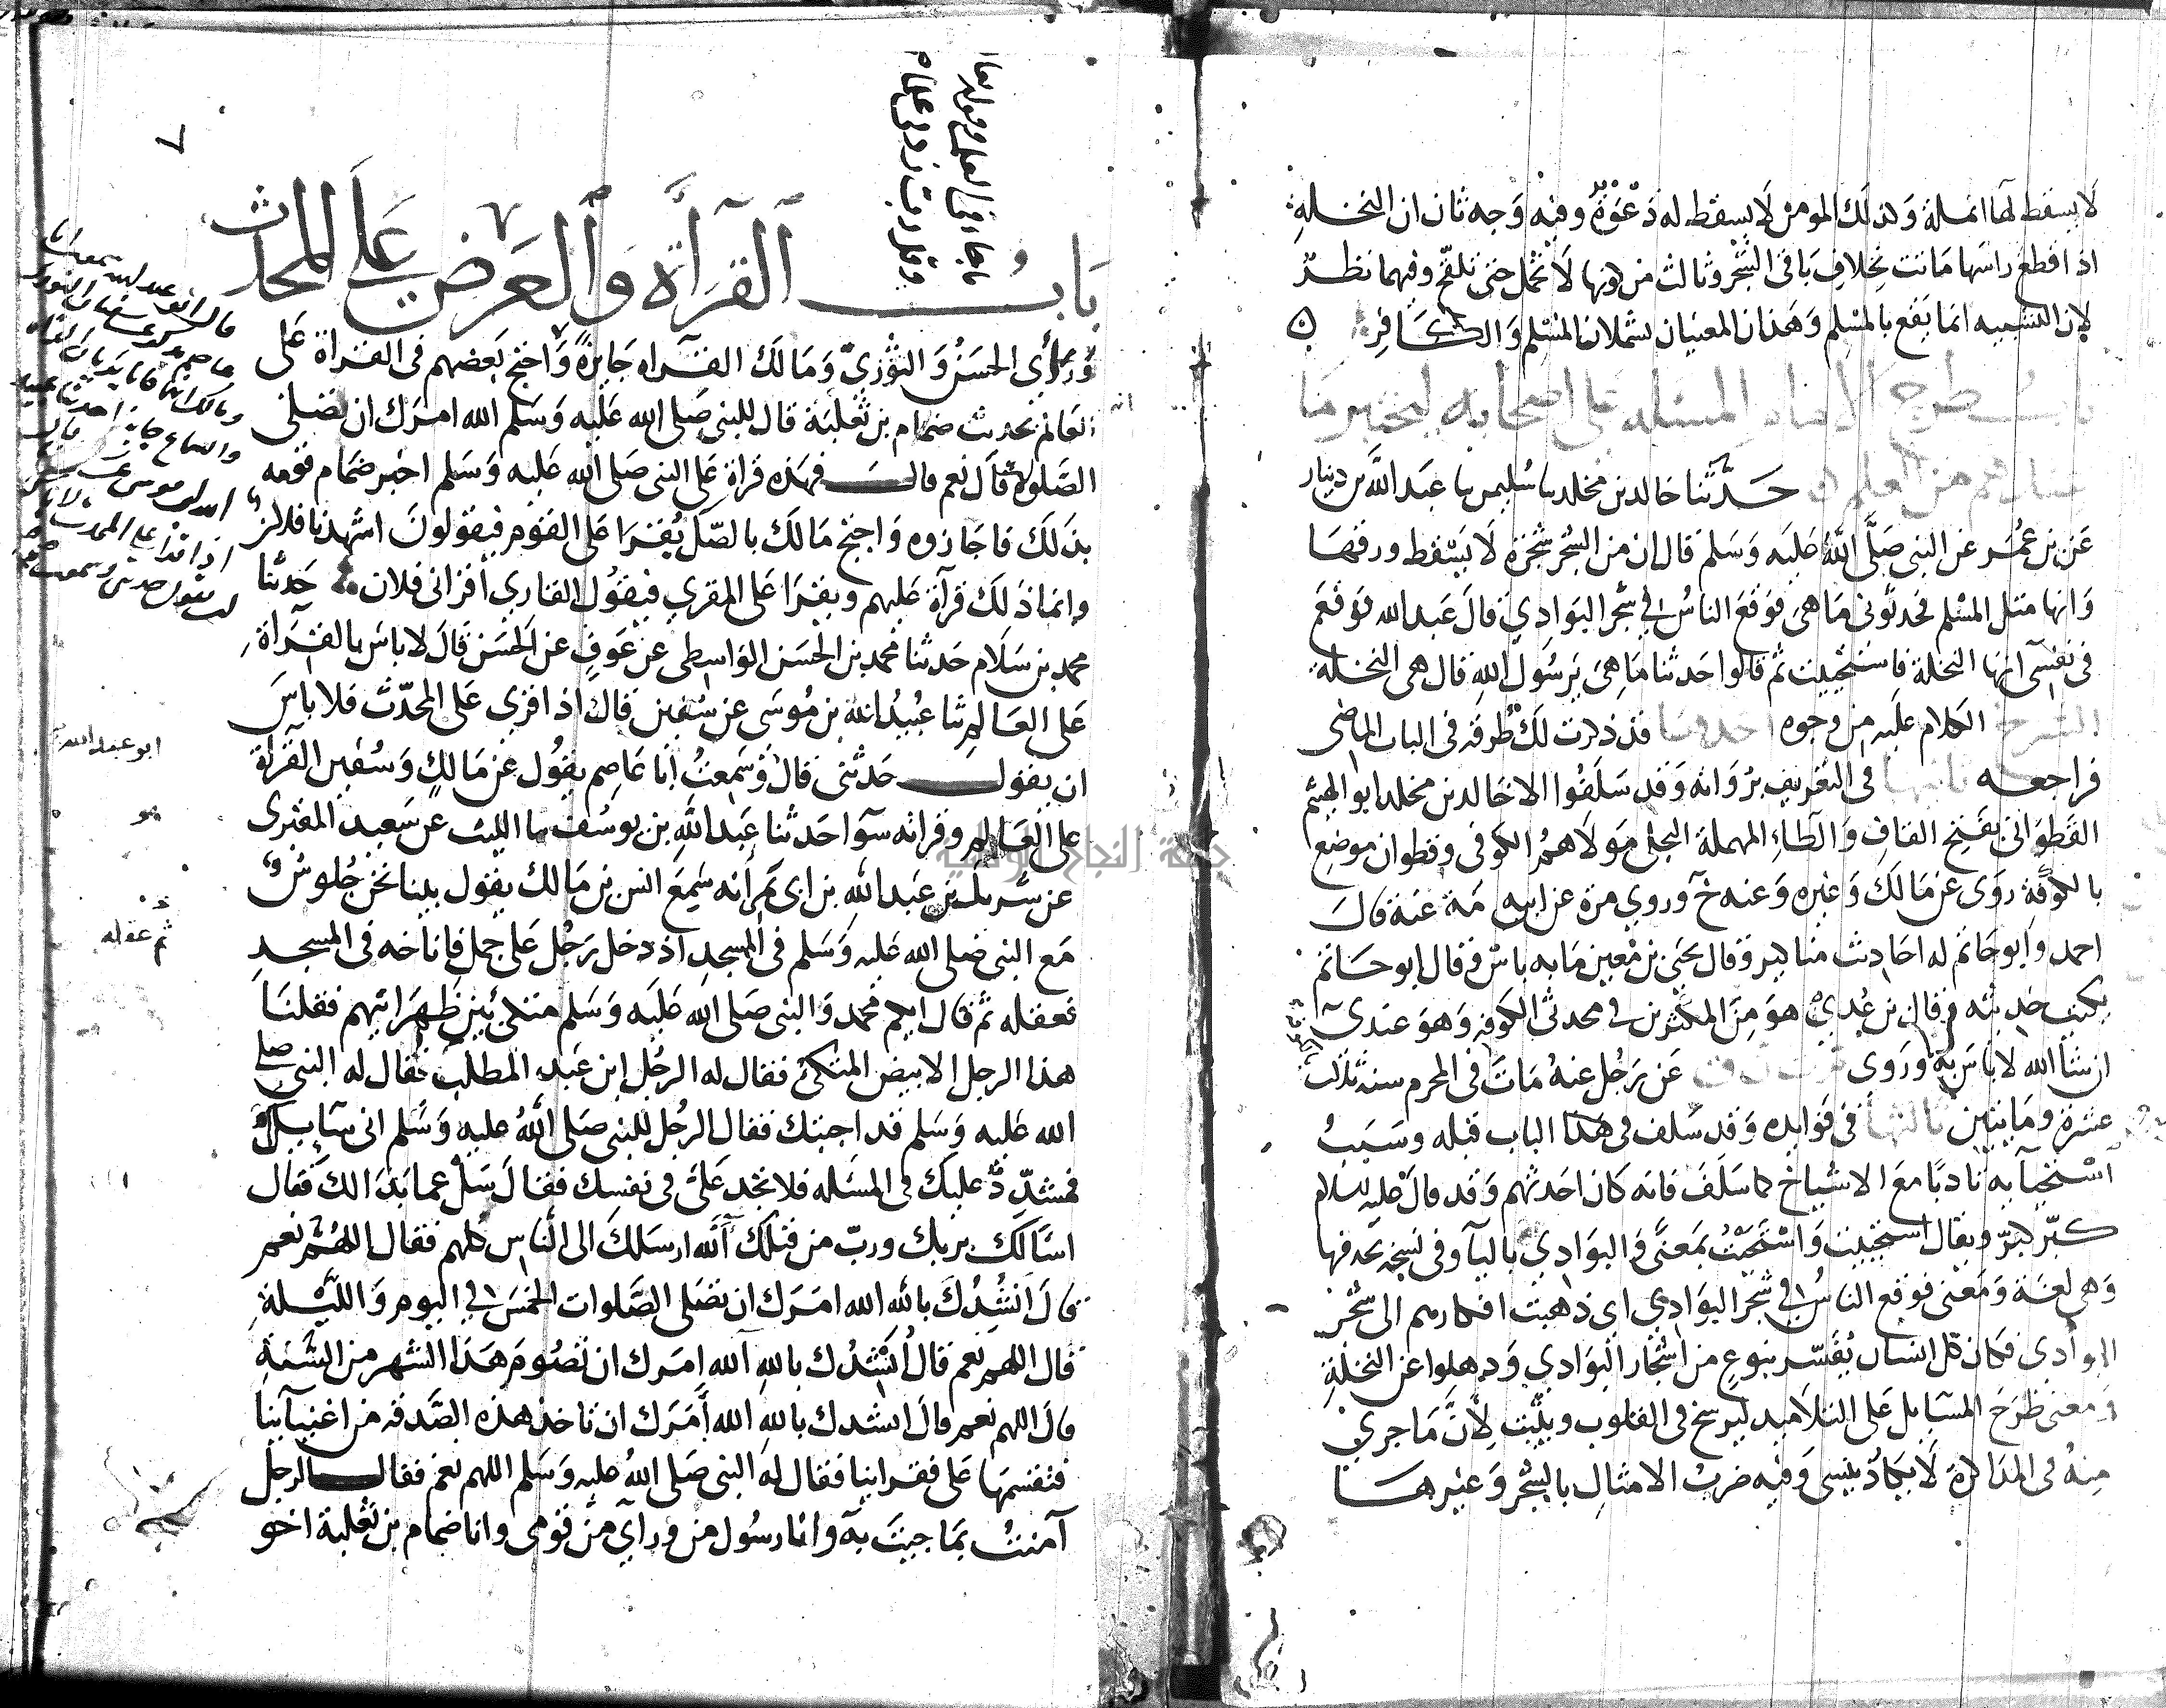 لا يسقط لها انملة وكذلك المومن لا يسقط له دعوة وفيه وجه ثان ان النخلة
اذا قطع راسها ماتت بخلاف باقي الشجر وثالث من كونها لا تحمل حتى تلقح وفيهما نظر
لان التشبيه انما يقع بالمسلم وهذان المعنيان يشملان المسلم والكافر
باب طرح الامام المسئلة على اصحابه ليختبر ما
عندهم من العلم حدثنا خالد بن مخلد سا سليمن سا عبد الله بن دينار
عن بن عمر عن النبي صلى الله عليه وسلم قال ان من الشجر شجرة لا يسقط ورقها
وانها مثل المسلم فحدثوني ما هي فوقع الناس في شجر البوادي قال عبد الله فوقع
في نفسي انها النخلة فاستحييت ثم قالوا حدثنا ما هي يرسول الله قال هي النخلة
الشرح الكلام عليه من وجوه احدها قد ذكرت لك طرقه في الباب الماضي
فراجعه ثانيها في التعريف برواته وقد سلفوا الا خالد بن مخلد ابو الهيثم
القطواني بفتح القاف والطاء المهملة البجلي مولاهم الكوفي وقطوان موضع
بالكوفة روى عن مالك وغيره وعنه خ وروى مرة عن عنه قال
احمد وابو حاتم له احاديث مناكير وقال يحيى بن معين ما به باس وقال ابو حاتم
يكتب حديثه وقال بن عدي هو من المكثرين في محدثي الكوفة وهو عندي
ان شا الله لا باس به وروى عن رجل عنه مات في المحرم سنة ثلث
عشرة ومايتين ثالثها في فوايده وقد سلف في هذا الباب قبله وسبب
استحيآيه تادبا مع الاشياخ كما سلف فانه كان احدثهم وقد قال عليه السلام
كبر كبر ويقال استحييت واستحيت بمعنى والبوادي باليآ وفي نسخة بحذفها
وهي لغة ومعنى فوقع الناس في شجر البوادي اي ذهبت افكارهم الى شجر
البوادي فكان كل انسان يفسر بنوع من اشجار البوادي وذهلوا عن النخلة
ومعنى طرح المسايل على التلاميد ليرسخ في القلوب ويثبت لأن ما جرى
منه في المذاكرة لا يكاد ينسى وفيه ضرب الامثال بالشجر وغيرها
٧
باب القرأة والعرض على المحدث
ورأي الحسن والثوري ومالك القراه جايزة واحتج بعضهم في القراة على
العالم بحديث ضمام بن ثعلبة قال للنبي صلى الله عليه وسلم الله امرك ان نصلي
الصلوة قال نعم قال فهذه قراة على النبي صلى الله عليه وسلم اخبر ضمام قومه
بذلك فاجازوه واحتج مالك بالصك يقرا على القوم فيقولون اشهدنا فلان
وانما ذلك قرآة عليهم ويقرا على المقري فيقول القاري أقراني فلان حدثنا
محمد بن سلام حدثنا محمد بن الحسن الواسطي عن عوف عن الحسن قال لا باس بالقرأة
على العالم ثنا عبيد الله بن موسى عن سفين قال اذا قري على المحدث فلا باس
ان يقول حدثني قال وسمعت أبا عاصم يقول عن مالك وسفين القرأة
على العالم وقراته سوآ حدثنا عبد الله بن يوسف سا الليث عن سعيد المقبري
عن شريك بن عبد الله بن ابي نمر أنه سمع انس بن مالك يقول بينا نحن جلوس
مع النبي صلى الله عليه وسلم في المسجد اذ دخل رجل على جمل فاناخه في المسجد
فعقله ثم قال ايكم محمد والنبي صلى الله عليه وسلم متكئ بين ظهرانيهم فقلنا
هذا الرجل الابيض المتكئ فقال له الرجل ابن عبد المطلب فقال له النبي صلى
الله عليه وسلم قد اجبتك فقال الرجل للنبي صلى الله عليه وسلم اني سآيلك
فمشدد عليك في المسئله فلا تجد علي في نفسك فقال سل عما بدا لك فقال
اسالك بربك ورب من قبلك آلله ارسلك الى الناس كلهم فقال اللهم نعم
قال انشدك بالله الله امرك ان نصلي الصلوات الخمس في اليوم والليلة
قال اللهم نعم قال أنشدك بالله آلله امرك ان نصوم هذا الشهر من السنة
قال اللهم نعم قال انشدك بالله الله أمرك ان تاخذ هذه الصدقه من اغنيآينا
فتقسمها على فقراينا فقال له النبي صلى الله عليه وسلم اللهم نعم فقال الرجل
آمنت بما جيت به وانا رسول من ورآي من قومي وانا ضمام بن ثعلبة اخو
ابو عبد الله
هو
ثم عقله